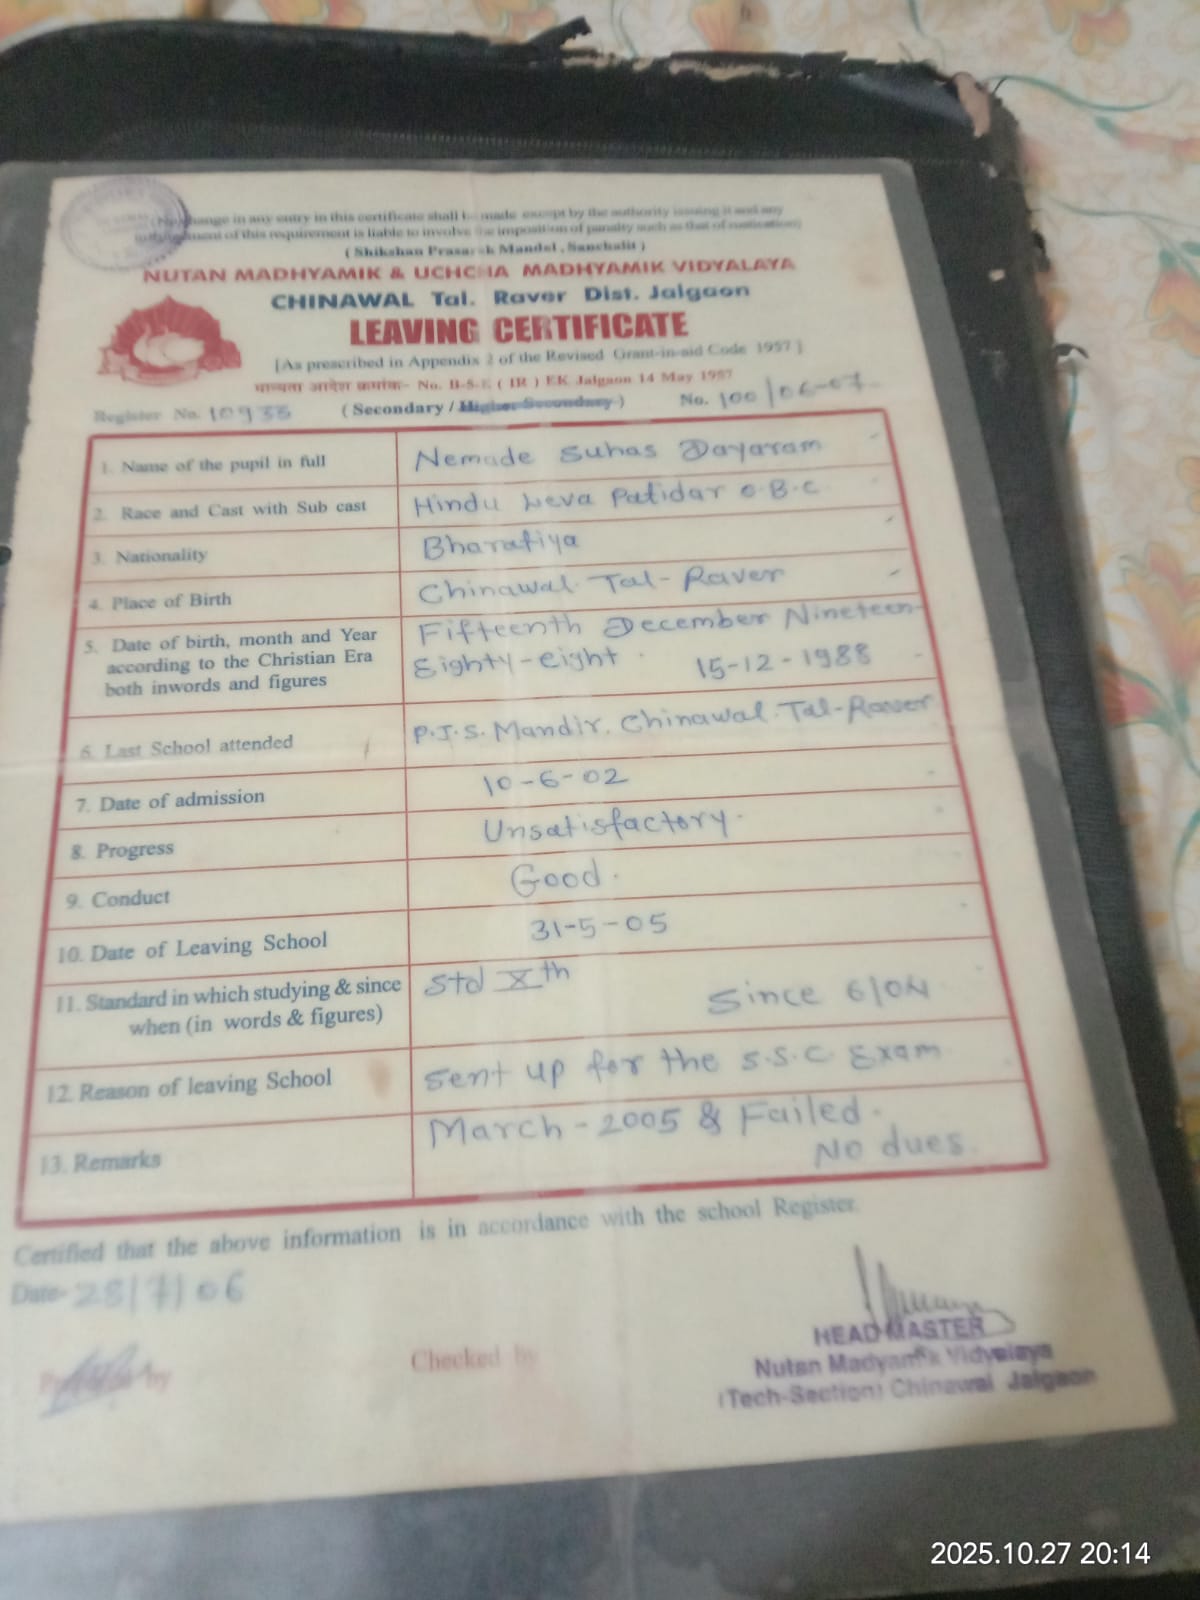 (No change in any entry in this certificate shall be made except by the authority issuing it and any
infringement of this requirement is liable to involve the imposition of penalty such as that of rustication)
( Shikshan Prasarak Mandal, Sanchalit )
NUTAN MADHYAMIK & UCHCHA MADHYAMIK VIDYALAYA
CHINAWAL Tal. Raver Dist. Jalgaon
LEAVING CERTIFICATE
[As prescribed in Appendix 2 of the Revised Grant-in-aid Code 1957 ]
मान्यता आदेश क्रमांक- No. B-S-E ( IR ) EK Jalgaon 14 May 1957
Register No. 10935 ( Secondary / Higher Secondary ) No. 100/06-07
1. Name of the pupil in full Nemade Suhas Dayaram
2. Race and Cast with Sub cast Hindu Leva Patidar O.B.C
3. Nationality Bharatiya
4. Place of Birth Chinawal. Tal- Raver
5. Date of birth, month and Year according to the Christian Era both inwords and figures Fifteenth December Nineteen-
Eighty-eight. 15-12-1988
6. Last School attended P.J.S. Mandir. Chinawal. Tal-Raver
7. Date of admission 10-6-02
8. Progress Unsatisfactory.
9. Conduct Good.
10. Date of Leaving School 31-5-05
11. Standard in which studying & since when (in words & figures) Std Xth Since 6/04
12. Reason of leaving School Sent up for the S.S.C. Exam
13. Remarks March-2005 & Failed.
No dues.
Certified that the above information is in accordance with the school Register.
Date- 28/7/06
Checked by
HEAD MASTER
Nutan Madyamik Vidyalaya
(Tech-Section) Chinawal Jalgaon
2025.10.27 20:14